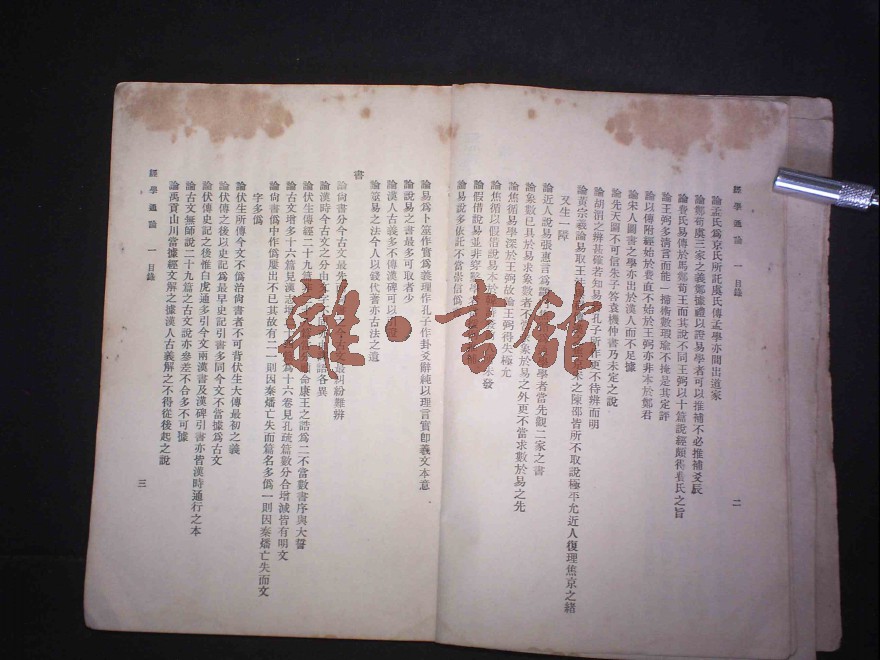 經學通論 一 目錄
二
論孟氏爲京氏所託虞氏傳孟學亦間出道家
論鄭荀虞三家之義鄭據禮以證易學者可以推補不必推補爻辰
論費氏易傳於馬鄭荀王而其說不同王弼以十篇說經頗得費氏之旨
論王弼多淸言而能一掃術數瑕瑜不掩是其定評
論以傳附經始於費直不始於王弼亦非本於鄭君
論宋人圖書之學亦出於漢人而不足據
論先天圖不可信朱子答袁機仲書乃未定之說
論胡渭之辨甚確若知易皆孔子所作更不待辨而明
論黃宗羲論易取王 之陳邵皆所不取說極平允近人復理焦京之緒
又生一障
論近人說易張惠言爲 學者當先觀二家之書
論象數已具於易求象數者不 象於易之外更不當求數於易之先
論焦循易學深於王弼故論王弼得失極允
論焦循以假借說易本於 發
論假借說易並非穿鑿學
論易說多依託不當崇信僞
論易爲卜筮作實爲義理作孔子作卦爻辭純以理言實卽羲文本意
論說易之書最多可取者少
論漢人古義多不傳漢碑可以
論筮易之法今人以錢代蓍亦古法之遺
書
論尙書分今古文最先 今古文最糾紛難辨
論漢時今古文之分由文字 語各異
論伏生傳經二十九篇 命康王之誥爲二不當數書序與大誓
論古文增多十六篇見漢志 爲十六卷見孔疏篇數分合增減皆有明文
論尙書僞中作僞屢出不已其故有二一則因秦燔亡失而篇名多僞一則因秦燔亡失而文
字多僞
論伏生所傳今文不僞治尙書者不可背伏生大傳最初之義
論伏傳之後以史記爲最早史記引書多同今文不當據爲古文
論伏傳史記之後惟白虎通多引今文兩漢書及漢碑引書亦皆漢時通行之本
論古文無師說二十九篇之古文說亦參差不合多不可據
論禹貢山川當據經文解之據漢人古義解之不得從後起之說
經學通論 一 目錄
三
雜·書館